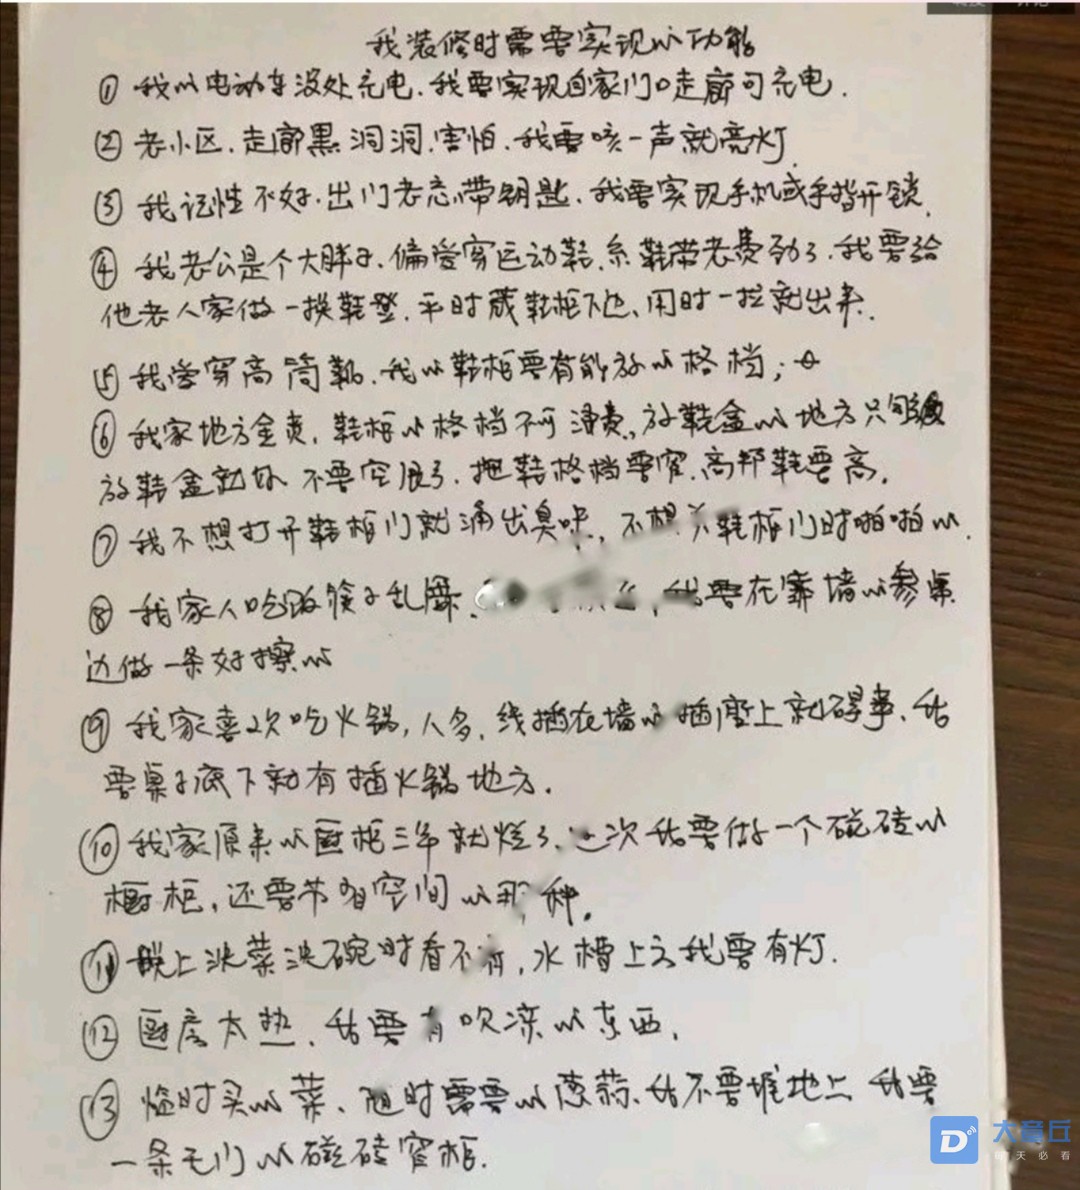 我装修时需要实现的功能
① 我的电动车没处充电.我要实现自家门口走廊可充电.
② 老小区.走廊黑洞洞.害怕.我要咳一声就亮灯.
③ 我记性不好.出门老忘带钥匙.我要实现手机或手指开锁.
④ 我老公是个大胖子.偏爱穿运动鞋.系鞋带老费劲了.我要给
他老人家做一换鞋登.平时藏鞋柜下边、用时一拉就出来.
⑤ 我爱穿高筒靴.我的鞋柜要有能放的格档;
⑥ 我家地方金贵.鞋柜的格档不可浪费.放鞋盒的地方只够
放鞋盒就好 不要空很多.拖鞋格档要窄.高邦鞋要高.
⑦ 我不想打开鞋柜门就涌出臭味,不想关鞋柜门时啪啪的.
⑧ 我家人吃饭筷子乱 ,我要在靠墙的参桌
边做一条好擦的
⑨ 我家喜欢吃火锅,人多.线插在墙的插座上就碍事.我
要桌子底下就有插火锅地方.
⑩ 我家原来的厨柜三年就烂了.这次我要做一个磁砖的
橱柜,还要节省空间的那种.
⑪ 晚上洗菜洗碗时看不清,水槽上方我要有灯.
⑫ 厨房太热.我要有吹凉的东西.
⑬ 临时买的菜、随时需要的葱蒜.我不要堆地上 我要
一条无门的磁砖窄柜.
大鱼丘
天必看